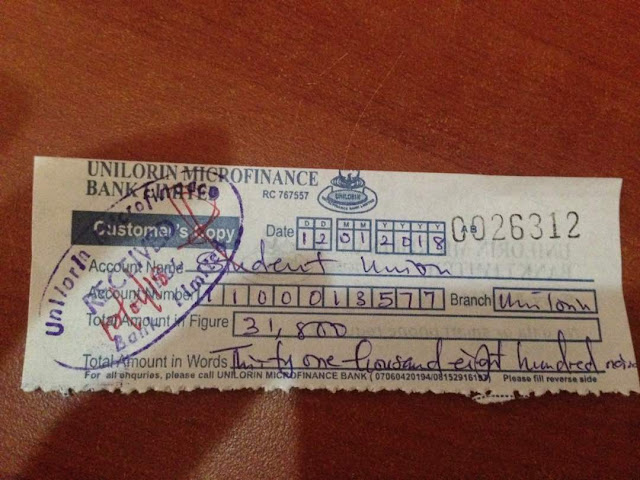 UNILORIN MICROFINANCE
BANK LIMITED
RC 767557
UNILORIN
Customer's Copy
Date D D M M Y Y Y Y
12 01 2018
AB
0026312
Account Name Student Union
Account Number 1100013577 Branch Unilorin
Total Amount in Figure 31,800
Total Amount in Words Thirty one thousand eight hundred
For all enquries, please call UNILORIN MICROFINANCE BANK ( 07060420194/08152916187) Please fill reverse side
Unilorin Microfinance
RECEIVED
Bank Limited